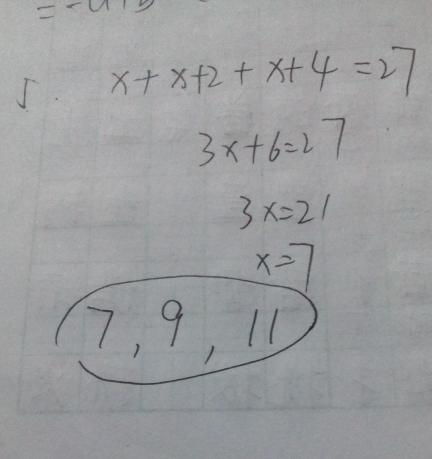 5. x+x+2+x+4=27
3x+6=27
3x=21
x=7
7, 9, 11